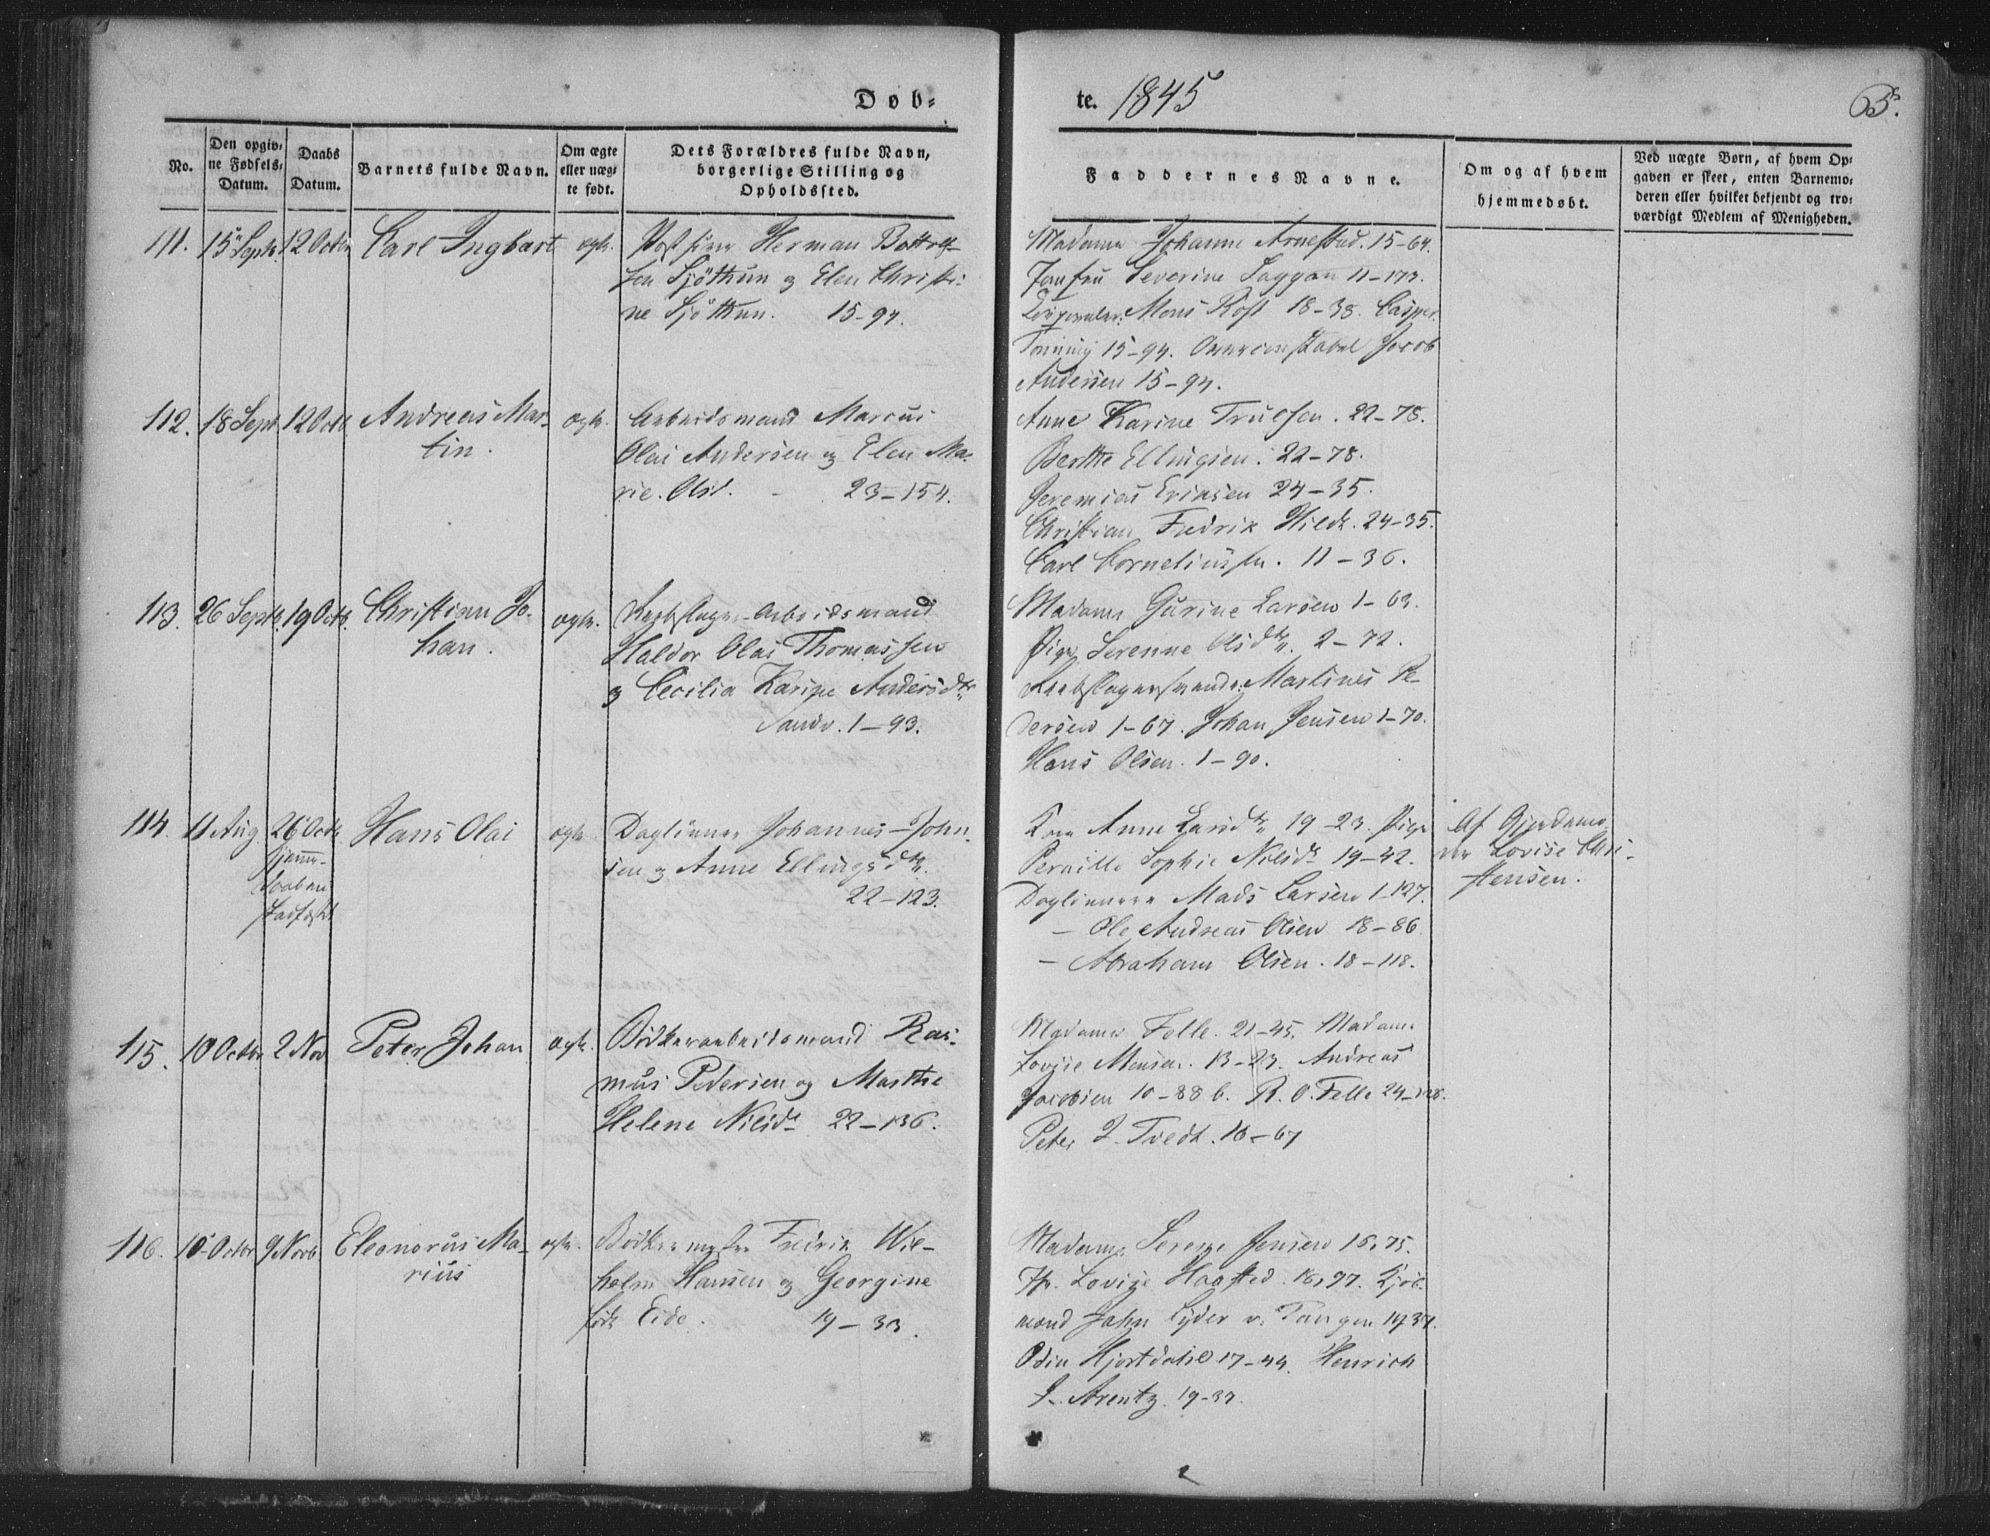 Døb-
te. 1845
65.
No.
Den opgiv-
ne Fødsels-
Datum.
Daabs
Datum.
Barnets fulde Navn.
Om ægte
eller uæg-
te født.
Dets Forældres fulde Navn,
borgerlige Stilling og
Opholdssted.
Faddernes Navne.
Om og af hvem
hjemmedøbt.
Ved uægte Børn, af hvem Op-
gaven er skeet, enten Barnemo-
deren eller hvilket bekjendt og tro-
værdigt Medlem af Menigheden.
111. 15 Septr. 12 Octbr Carl Ingbart ægte.
Herman
Sjöthun og Elen Christi-
ne Sjöthun. 15-94.
Madame Johanne Arnestad. 15-64.
Jomfru Severine Saggan 11-173.
Mons Rost 18-38. Casper
Tonning 15-94. Jacob
Andersen 15-94.
112. 18 Sept. 12 Octb. Andreas Mar-
tin.
ægte.
Arbeidsmand Marcus
Olai Andersen og Elen Ma-
rie Olsd. - 23-154.
Anne Karine Truelsen. 22-78.
Berthe Ellingsen. 22-78.
Jeremias Ericsen 24-35.
Christian Fredrik Hildr. 24-35.
Carl Corneliussen. 11-36.
113. 26 Septb. 19 Octb. Christian Jo-
han.
ægte.
Reebslager-Arbeidsmand
Haldor Olai Thomassen
og Cecilia Karine Andersdtr
Sandv. 1-93.
Madame Gurine Larsen 1-63.
Pige Serenne Olsdtr. 2-72.
Reebslagersvende: Martines Pe-
dersen 1-67. Johan Jensen 1-70.
Hans Olsen. 1-90.
114. 11 Aug. 26 Octb.
Hjemme-
daaben
stadfæst.
Hans Olai ægte
Dagleiner Johannes John-
sen og Anne Ellingsdtr.
22-123.
Kone Anne Larsdtr 19-23. Pige
Pernille Sophie Nilsdr 19-42.
Dagleinere Mads Larsen 1-127.
- Ole Andreas Olsen 18-86.
- Abraham Olsen. 18-118.
Af Gjordemo-
der Lovise Chri-
stensen.
115. 10 Octbr. 2 Nov Peter Johan ægte.
Bødkerarbeidsmand Ras-
mus Pedersen og Marthe
Helene Nilsdr 22-136.
Madame Felle. 21-45. Madame
Lovise Monsen. 13-23. Andreas
Jacobsen 10-88 b. R. O. Felle 24-128.
Peter J. Tvedt. 16-67
116. 10 Octbr 9 Novb Eleonorus Ma-
rius
ægte.
Bødkermester Fredrik Wil-
helm Hansen og Georgine
født Eide. 19-33.
Madame Serene Jensen 16,75.
Jfr. Lovise Hagsted. 16,97. Kjøb-
mand John Lyder v. Tangen 19,37.
Odin Hjortdahl 17-44. Henrich
J. Arentz. 19-37.